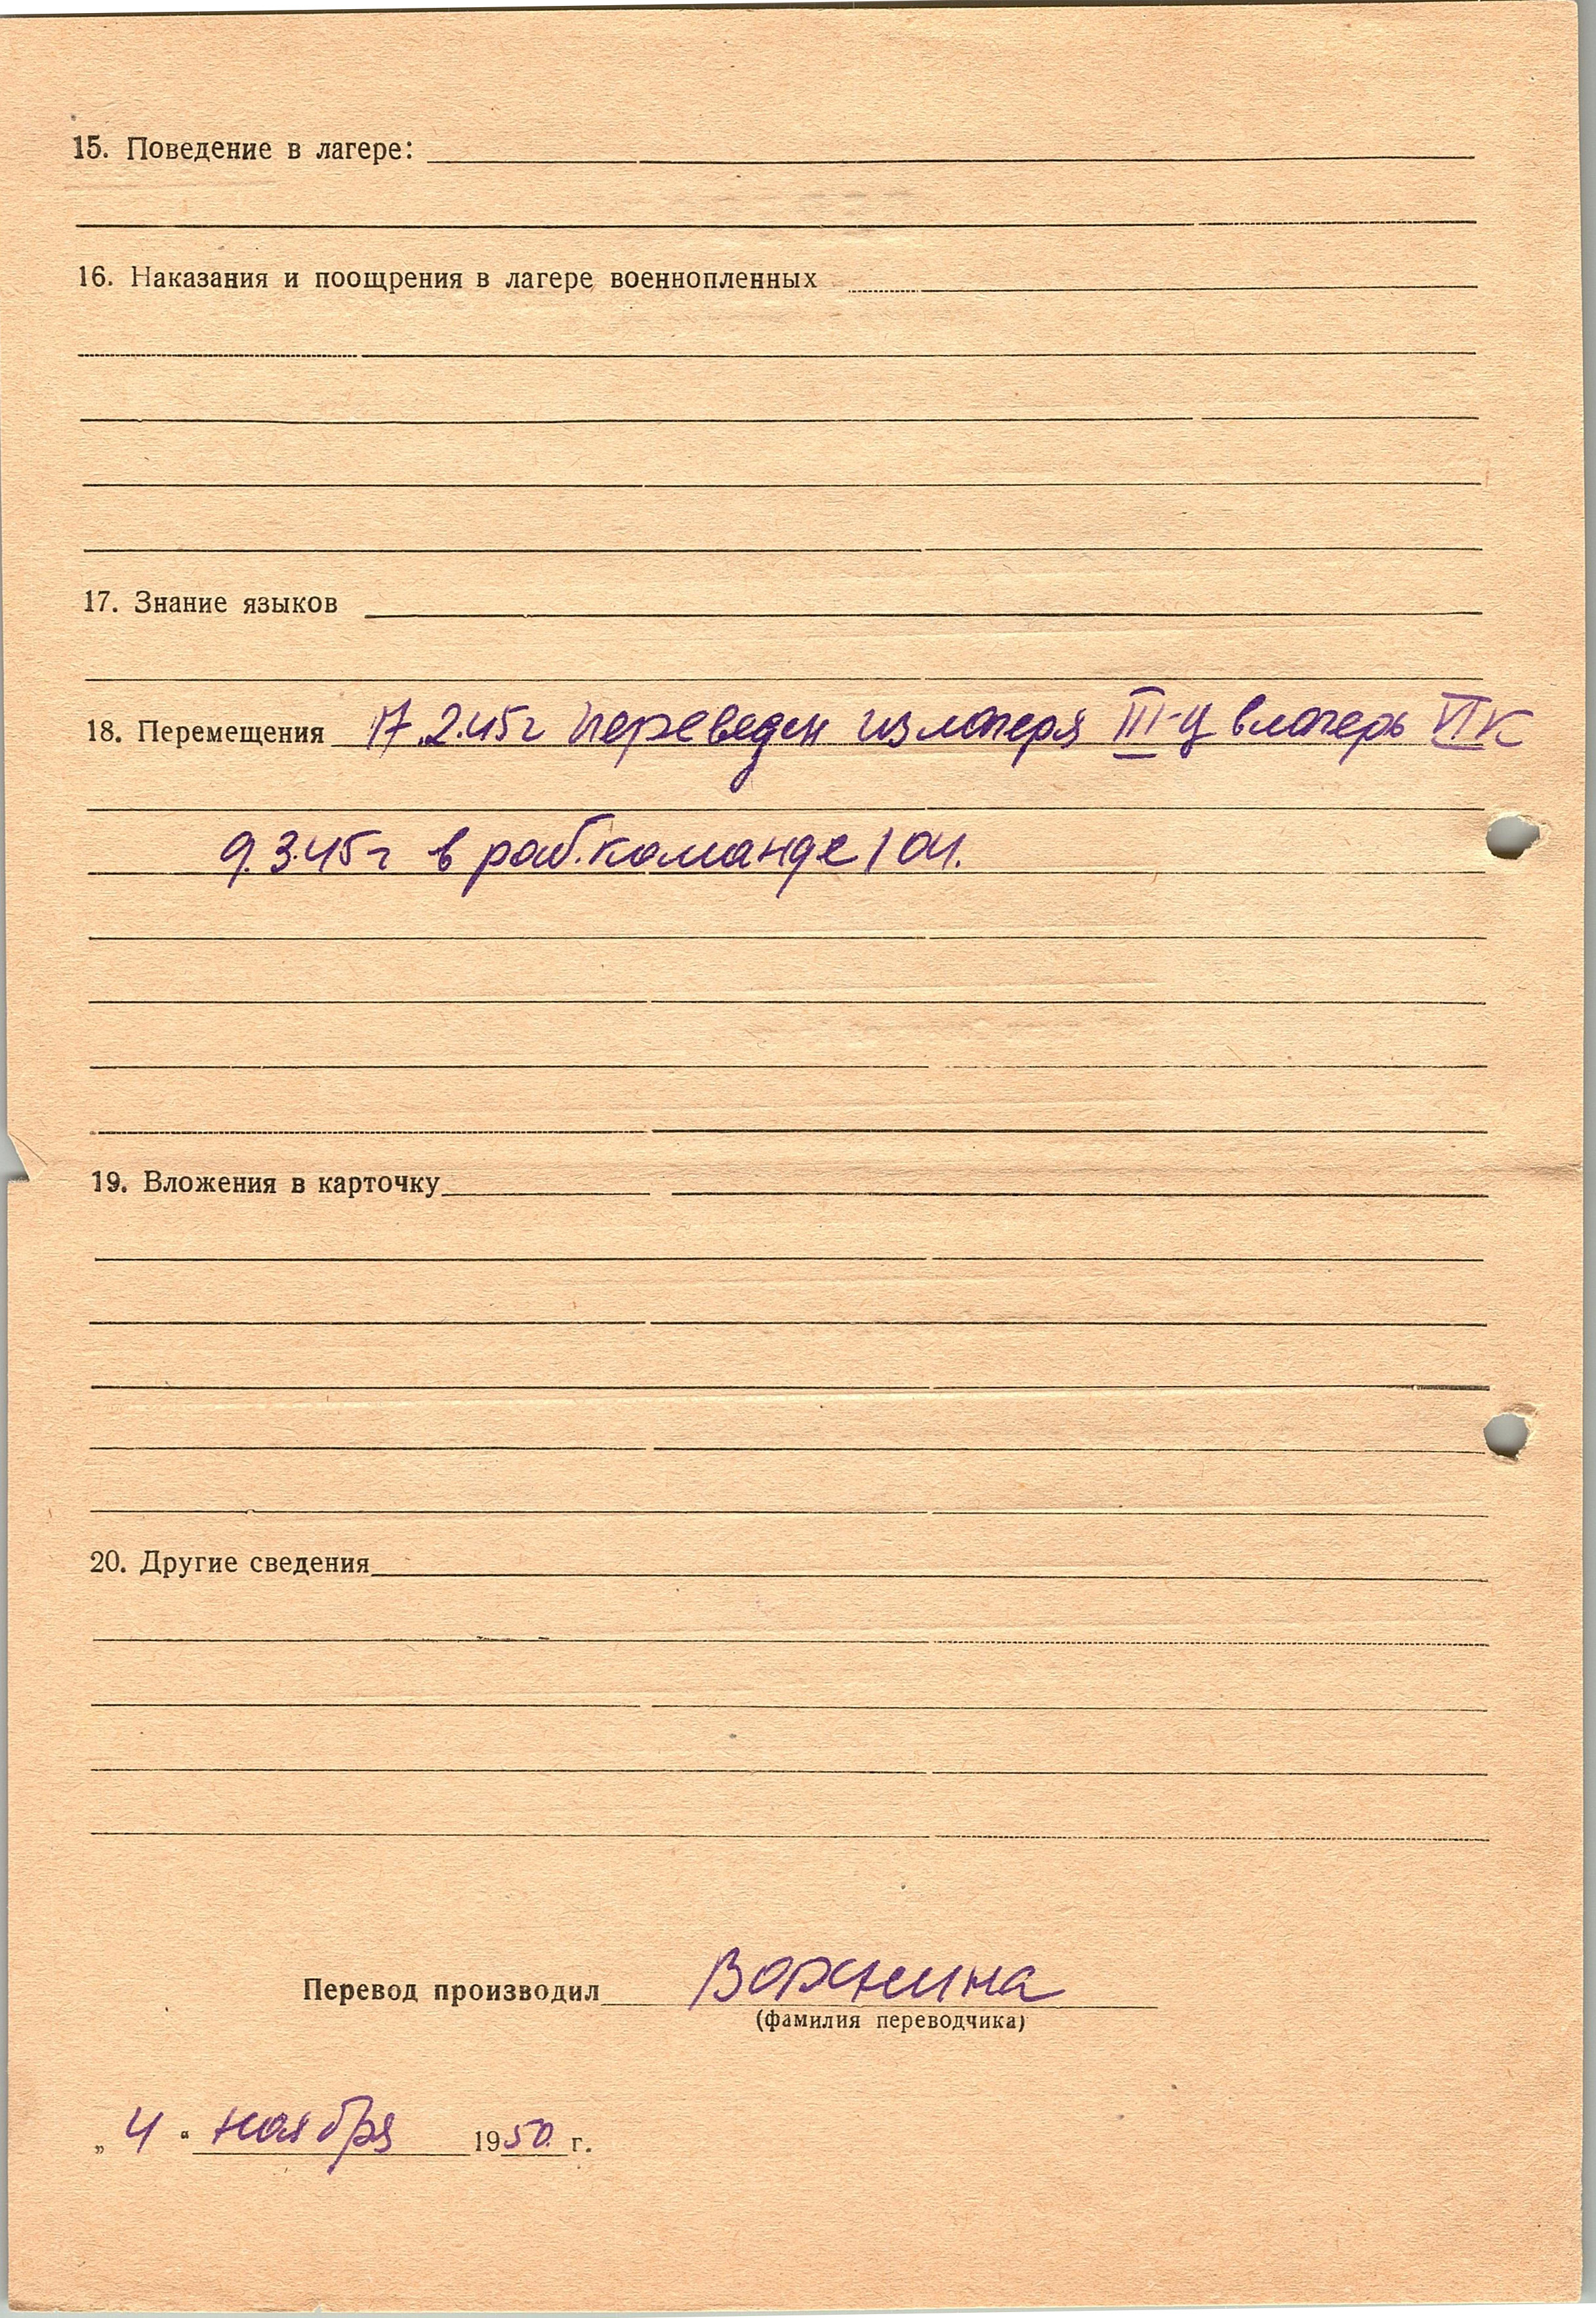 15. Поведение в лагере:
16. Наказания и поощрения в лагере военнопленных
17. Знание языков
18. Перемещения 17.2.45г переведен из лагеря III-Ц в лагерь VI К
9.3.45г в раб. команде 104.
19. Вложения в карточку
20. Другие сведения
Перевод производил
(фамилия переводчика)
„4“ ноября 1950 г.